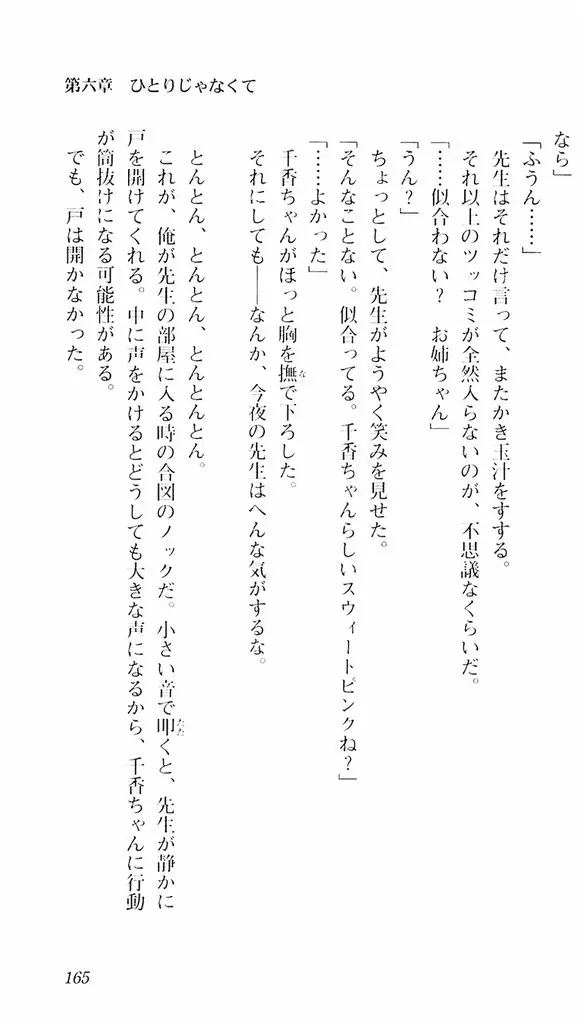 第六章　ひとりじゃなくて
なら」
「ふうん……」
　先生はそれだけ言って、またかき玉汁をすする。
　それ以上のツッコミが全然入らないのが、不思議なくらいだ。
「……似合わない？　お姉ちゃん」
「うん？」
　ちょっとして、先生がようやく笑みを見せた。
「そんなことない。似合ってる。千香ちゃんらしいスウィートピンクね？」
「……よかった」
　千香ちゃんがほっと胸を撫で下ろした。
　それにしても――なんか、今夜の先生はへんな気がするな。
　とんとん、とんとん、とんとんとん。
　これが、俺が先生の部屋に入る時の合図のノックだ。小さい音で叩くと、先生が静かに
戸を開けてくれる。中に声をかけるとどうしても大きな声になるから、千香ちゃんに行動
が筒抜けになる可能性がある。
　でも、戸は開かなかった。
165